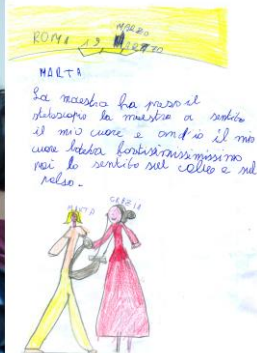 ROMA 19 MARZO
MARTA
La maestra ha preso il
la maestra a sentito
il mio cuore e il mio
cuore batteva fortissimissimissimo
poi lo sentito sul collo e sul
polso.
MARTA GRAZIA